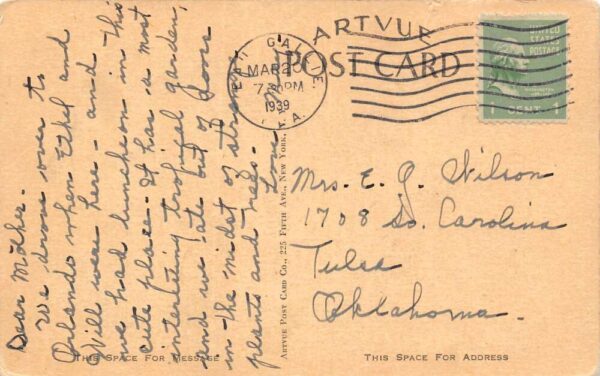 ARTVUE
POST CARD
EAU GALLIE
MAR 20
7 30 PM
1939
FLA.
UNITED
STATES
POSTAGE
CENT 1
Dear Mother.
We drove over to
Orlando when Ethel and
Will were here - and
we had luncheon in this
cute place. It has a most
interesting tropical garden,
and we ate out of doors
in the midst of strange
plants and trees.
Love
Mrs. E. J. Wilson
1708 So. Carolina
Tulsa
Oklahoma.
Artvue Post Card Co., 225 Fifth Ave., New York, N.Y.
This Space For Message
This Space For Address